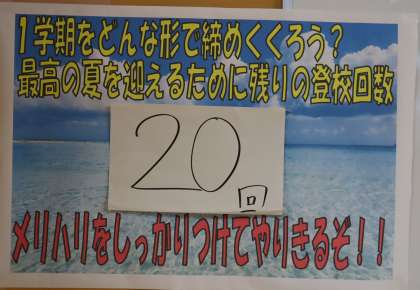 1学期をどんな形で締めくくろう？
最高の夏を迎えるために残りの登校回数
20回
メリハリをしっかりつけてやりきるぞ！！